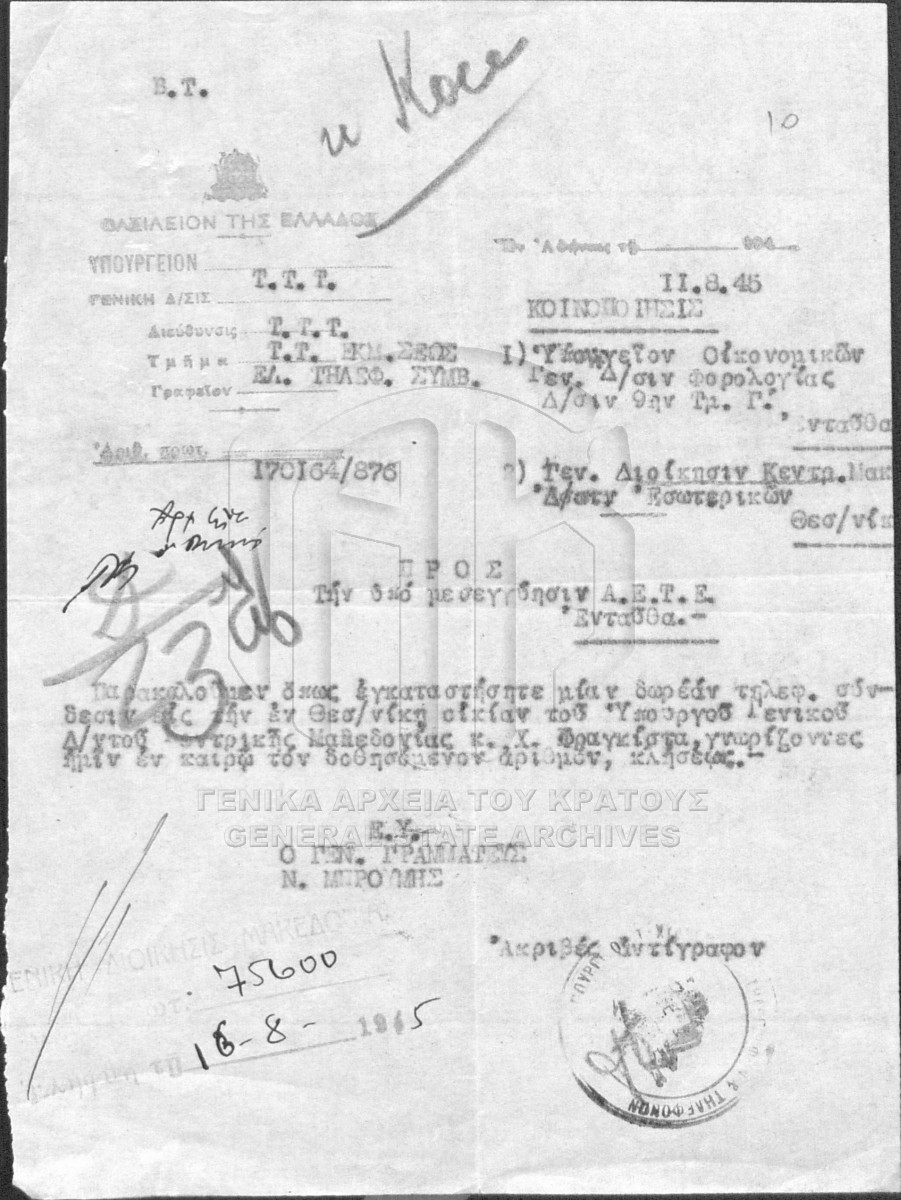 Β.Τ.
10
ΒΑΣΙΛΕΙΟΝ ΤΗΣ ΕΛΛΑΔΟΣ
ΥΠΟΥΡΓΕΙΟΝ
Τ.Τ.Τ.
ΓΕΝΙΚΗ Δ/ΣΙΣ
Διεύθυνσις Τ.Τ.Τ.
Τμήμα Τ.Τ. ΕΚΜ.ΣΕΩΣ
Γραφεῖον ΕΛ. ΤΗΛΕΦ. ΣΥΜΒ.
Ἀριθ. πρωτ.
170164/876
Ἐν Ἀθήναις τῇ 194
11.8.45
ΚΟΙΝΟΠΟΙΗΣΙΣ
1) Ὑπουργεῖον Οἰκονομικῶν
Γεν. Δ/σιν Φορολογίας
Δ/σιν 9ην Τμ. Γ.
Ἐνταῦθα
2) Γεν. Διοίκησιν Κεντρ.Μακ
Δ/σιν Ἐσωτερικῶν
Θεσ/νίκ
ΠΡΟΣ
Τήν ὑπό μεσεγγύησιν Α.Ε.Τ.Ε.
Ἐνταῦθα.-
Παρακαλοῦμεν ὅπως ἐγκαταστήσητε μίαν δωρεάν τηλεφ. σύν-
δεσιν εἰς τήν ἐν Θεσ/νίκῃ οἰκίαν τοῦ Ὑπουργοῦ Γενικοῦ
Δ/ντοῦ Κεντρικῆς Μακεδονίας κ. Χ. Φραγκίστα,γνωρίζοντες
ἡμῖν ἐν καιρῷ τόν δοθησόμενον ἀριθμόν, κλήσεως.-
ΓΕΝΙΚΑ ΑΡΧΕΙΑ ΤΟΥ ΚΡΑΤΟΥΣ
GENERAL STATE ARCHIVES
Ε.Υ.
Ο ΓΕΝ. ΓΡΑΜΜΑΤΕΥΣ
Ν. ΜΠΡΟΥΜΗΣ
ΓΕΝΙΚΗ ΔΙΟΙΚΗΣΙΣ ΜΑΚΕΔΟΝΙΑΣ
75600
16-8- 1945
Ἀκριβές ἀντίγραφον
ΤΗΛΕΦΩΝΩΝ